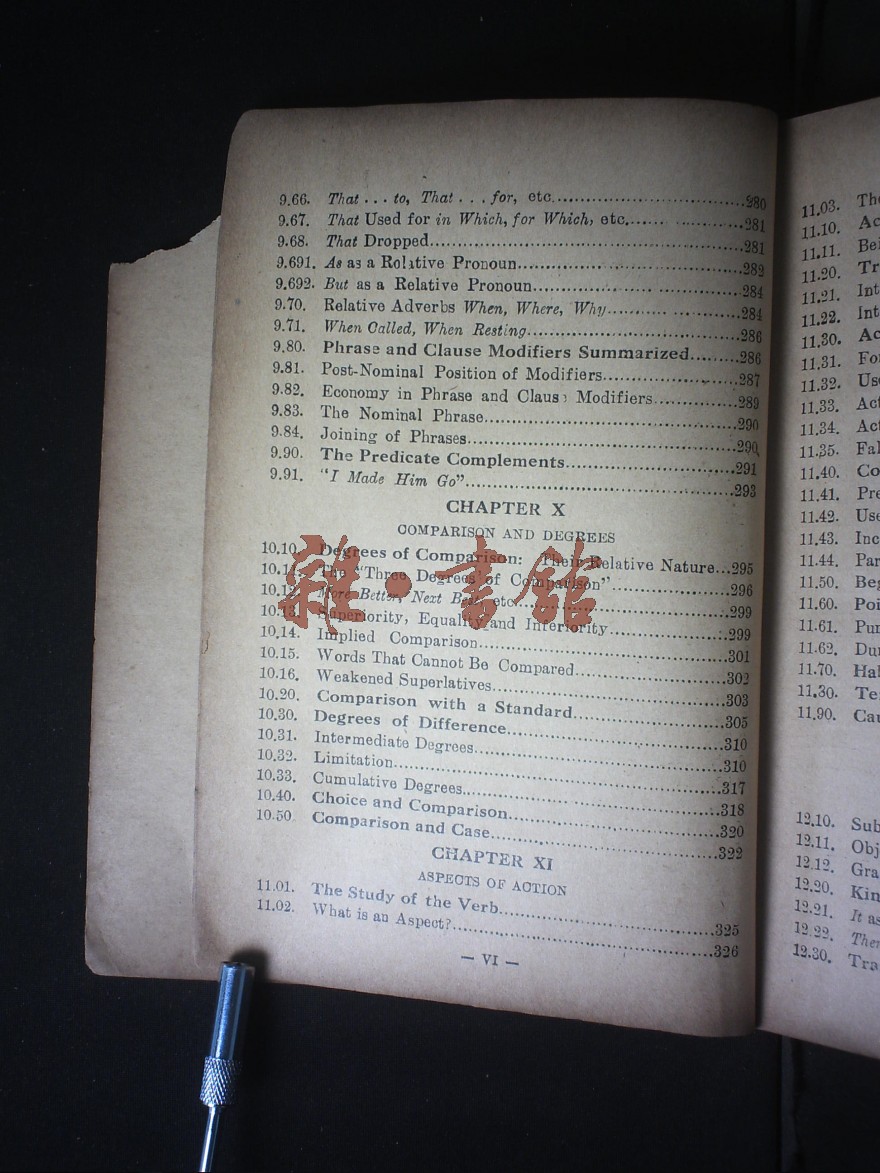 9.66. That . . . to, That . . . for, etc. 280
9.67. That Used for in Which, for Which, etc. 281
9.68. That Dropped 281
9.691. As as a Relative Pronoun 282
9.692. But as a Relative Pronoun 284
9.70. Relative Adverbs When, Where, Why 284
9.71. When Called, When Resting 286
9.80. Phrase and Clause Modifiers Summarized 286
9.81. Post-Nominal Position of Modifiers 287
9.82. Economy in Phrase and Clause Modifiers 289
9.83. The Nominal Phrase 290
9.84. Joining of Phrases 290
9.90. The Predicate Complements 291
9.91. "I Made Him Go" 293
CHAPTER X
COMPARISON AND DEGREES
10.10. Degrees of Comparison: Their Relative Nature 295
10.11. The "Three Degrees of Comparison" 296
10.12. More Better, Next Best, etc. 299
10.13. Superiority, Equality and Inferiority 299
10.14. Implied Comparison 301
10.15. Words That Cannot Be Compared 302
10.16. Weakened Superlatives 303
10.20. Comparison with a Standard 305
10.30. Degrees of Difference 310
10.31. Intermediate Degrees 310
10.32. Limitation 317
10.33. Cumulative Degrees 318
10.40. Choice and Comparison 320
10.50 Comparison and Case 322
CHAPTER XI
ASPECTS OF ACTION
11.01. The Study of the Verb 325
11.02. What is an Aspect? 326
— VI —
雜·書館
11.03. The
11.10. Ac
11.11. Bei
11.20. Tr
11.21. Int
11.22. Int
11.30. Ac
11.31. Fo
11.32. Us
11.33. Act
11.34. Act
11.35. Fal
11.40. Co
11.41. Pre
11.42. Use
11.43. Inc
11.44. Par
11.50. Beg
11.60. Poi
11.61. Pun
11.62. Dur
11.70. Hal
11.30. Te
11.90. Cau
12.10. Sub
12.11. Obj
12.12. Gra
12.20. Kin
12.21. It as
12.22. Ther
12.30. Tra